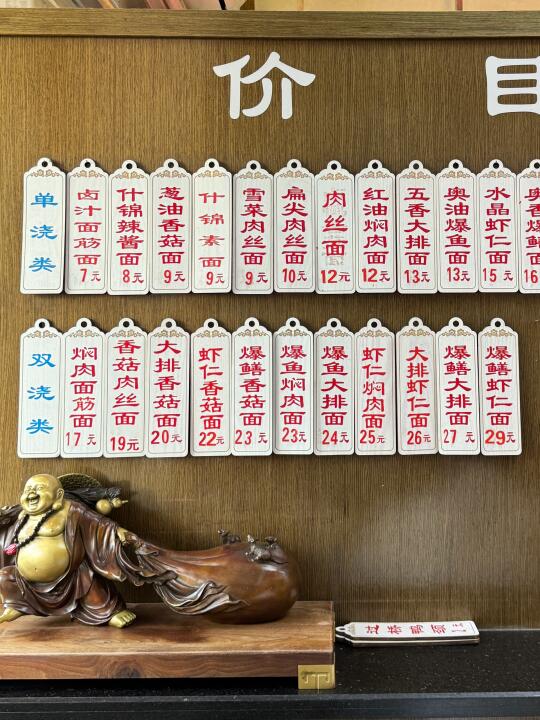 价目
单浇类
卤汁面筋面 7元
什锦辣酱面 8元
葱油香菇面 9元
什锦素面 9元
雪菜肉丝面 9元
扁尖肉丝面 10元
肉丝面 12元
红油焖肉面 12元
五香大排面 13元
奥油爆鱼面 13元
水晶虾仁面 15元
双浇类
焖肉面筋面 17元
香菇肉丝面 19元
大排香菇面 20元
虾仁香菇面 22元
爆鳝香菇面 23元
爆鱼焖肉面 23元
爆鱼大排面 24元
虾仁焖肉面 25元
大排虾仁面 26元
爆鳝大排面 27元
爆鳝虾仁面 29元